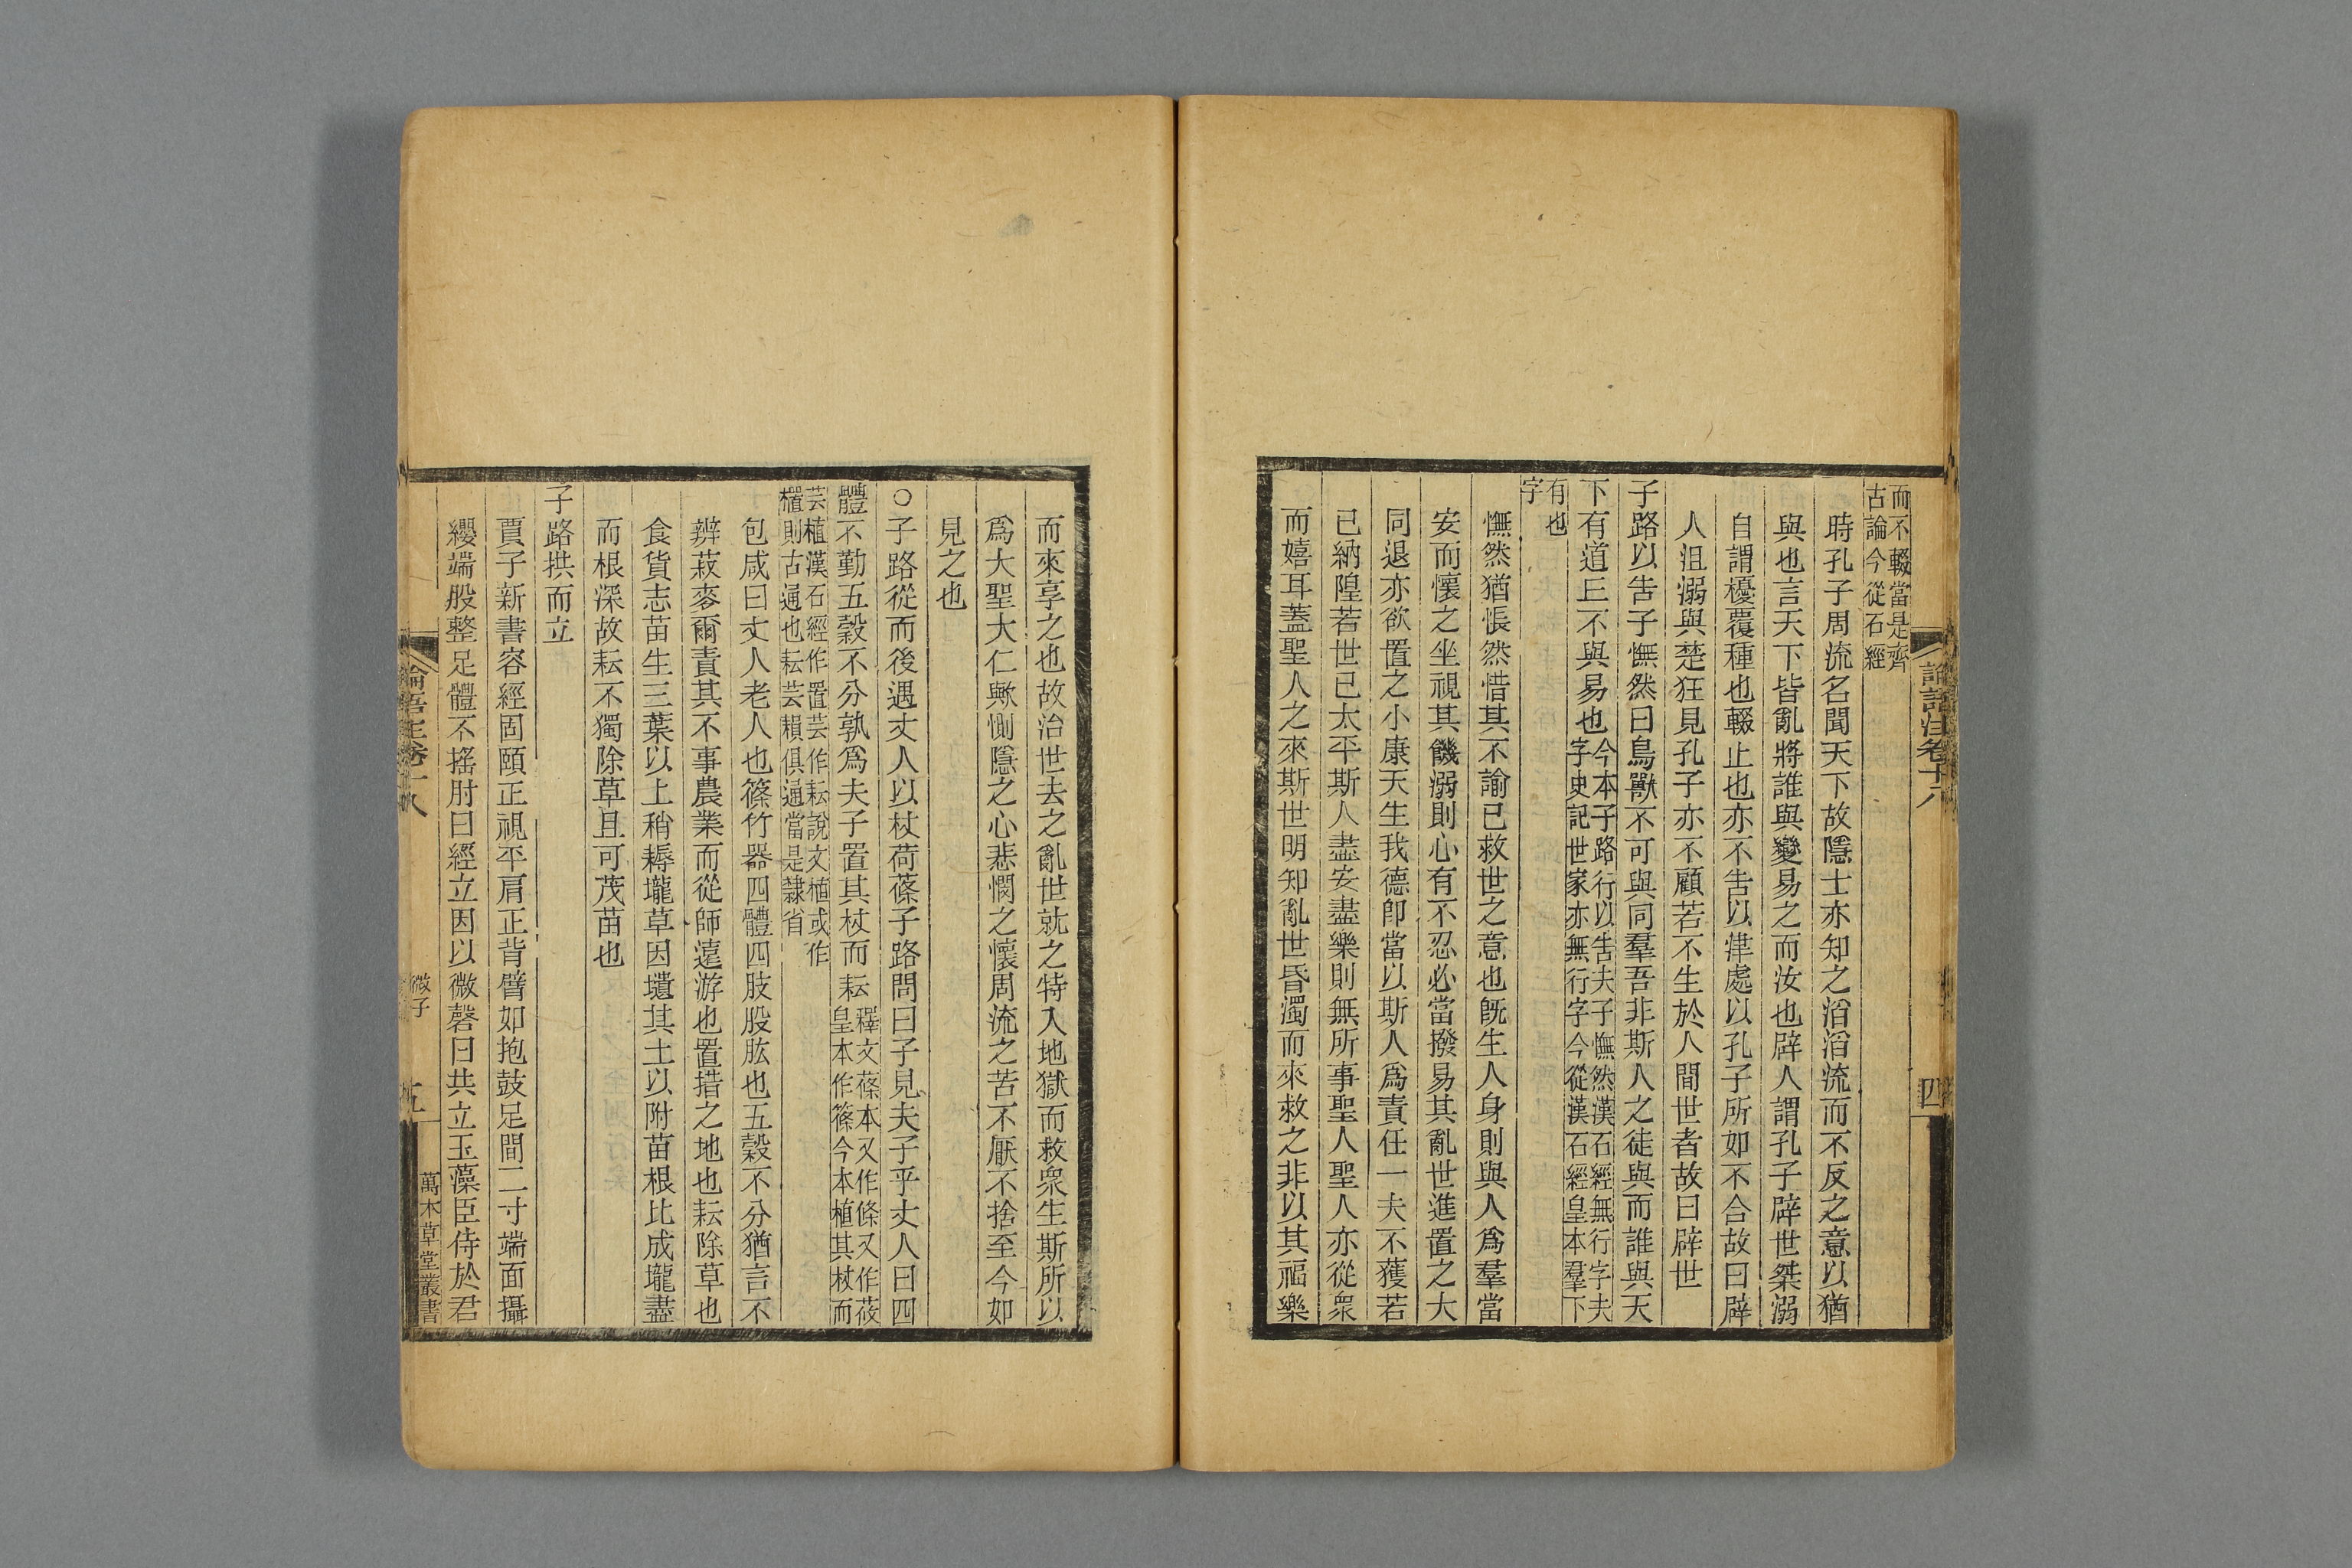 論語注卷十八
四
而不輟當是齊
古論今從石經
時孔子周流名聞天下故隱士亦知之滔滔流而不反之意以猶
與也言天下皆亂將誰與變易之而汝也辟人謂孔子辟世桀溺
自謂耰覆種也輟止也亦不告以津處以孔子所如不合故曰辟
人沮溺與楚狂見孔子亦不顧若不生於人間世者故曰辟世
子路以告子憮然曰鳥獸不可與同羣吾非斯人之徒與而誰與天
下有道丘不與易也
今本子路行以告夫子憮然漢石經無行字夫
字史記世家亦無行字今從漢石經皇本羣下
有也
字
憮然猶悵然惜其不諭已救世之意也旣生人身則與人爲羣當
安而懷之坐視其饑溺則心有不忍必當撥易其亂世進置之大
同退亦欲置之小康天生我德卽當以斯人爲責任一夫不獲若
已納隍若世已太平斯人盡安盡樂則無所事聖人聖人亦從衆
而嬉耳蓋聖人之來斯世明知亂世昏濁而來救之非以其福樂
而來享之也故治世去之亂世就之特入地獄而救衆生斯所以
爲大聖大仁歟惻隱之心悲憫之懷周流之苦不厭不捨至今如
見之也
○子路從而後遇丈人以杖荷蓧子路問曰子見夫子乎丈人曰四
體不勤五穀不分孰爲夫子置其杖而耘
釋文蓧本又作條又作莜
皇本作篠今本植其杖而
芸植漢石經作置芸作耘說文植或作
櫃則古通也耘芸賴俱通當是隸省
包咸曰丈人老人也篠竹器四體四肢股肱也五穀不分猶言不
辨菽麥爾責其不事農業而從師遠游也置措之地也耘除草也
食貨志苗生三葉以上稍耨壠草因壝其土以附苗根比成壠盡
而根深故耘不獨除草且可茂苗也
子路拱而立
賈子新書容經固頤正視平肩正背臂如抱鼓足間二寸端面攝
纓端股整足體不搖肘曰經立因以微磬曰共立玉藻臣侍於君
論語注卷十八
微子
五
萬木草堂叢書